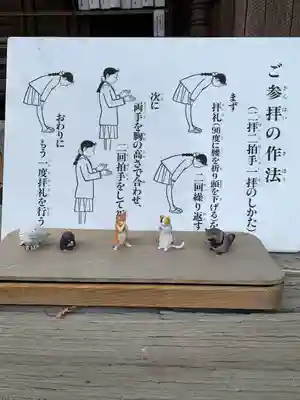 ご参拝の作法
さんぱい
さほう
（二拝二拍手一拝のしかた）
まず
拝礼（90度に腰を折り頭を下げる）を
二回繰り返す
次に
両手を胸の高さで合わせ、
二回拍手をして
おわりに
もう一度拝礼を行う